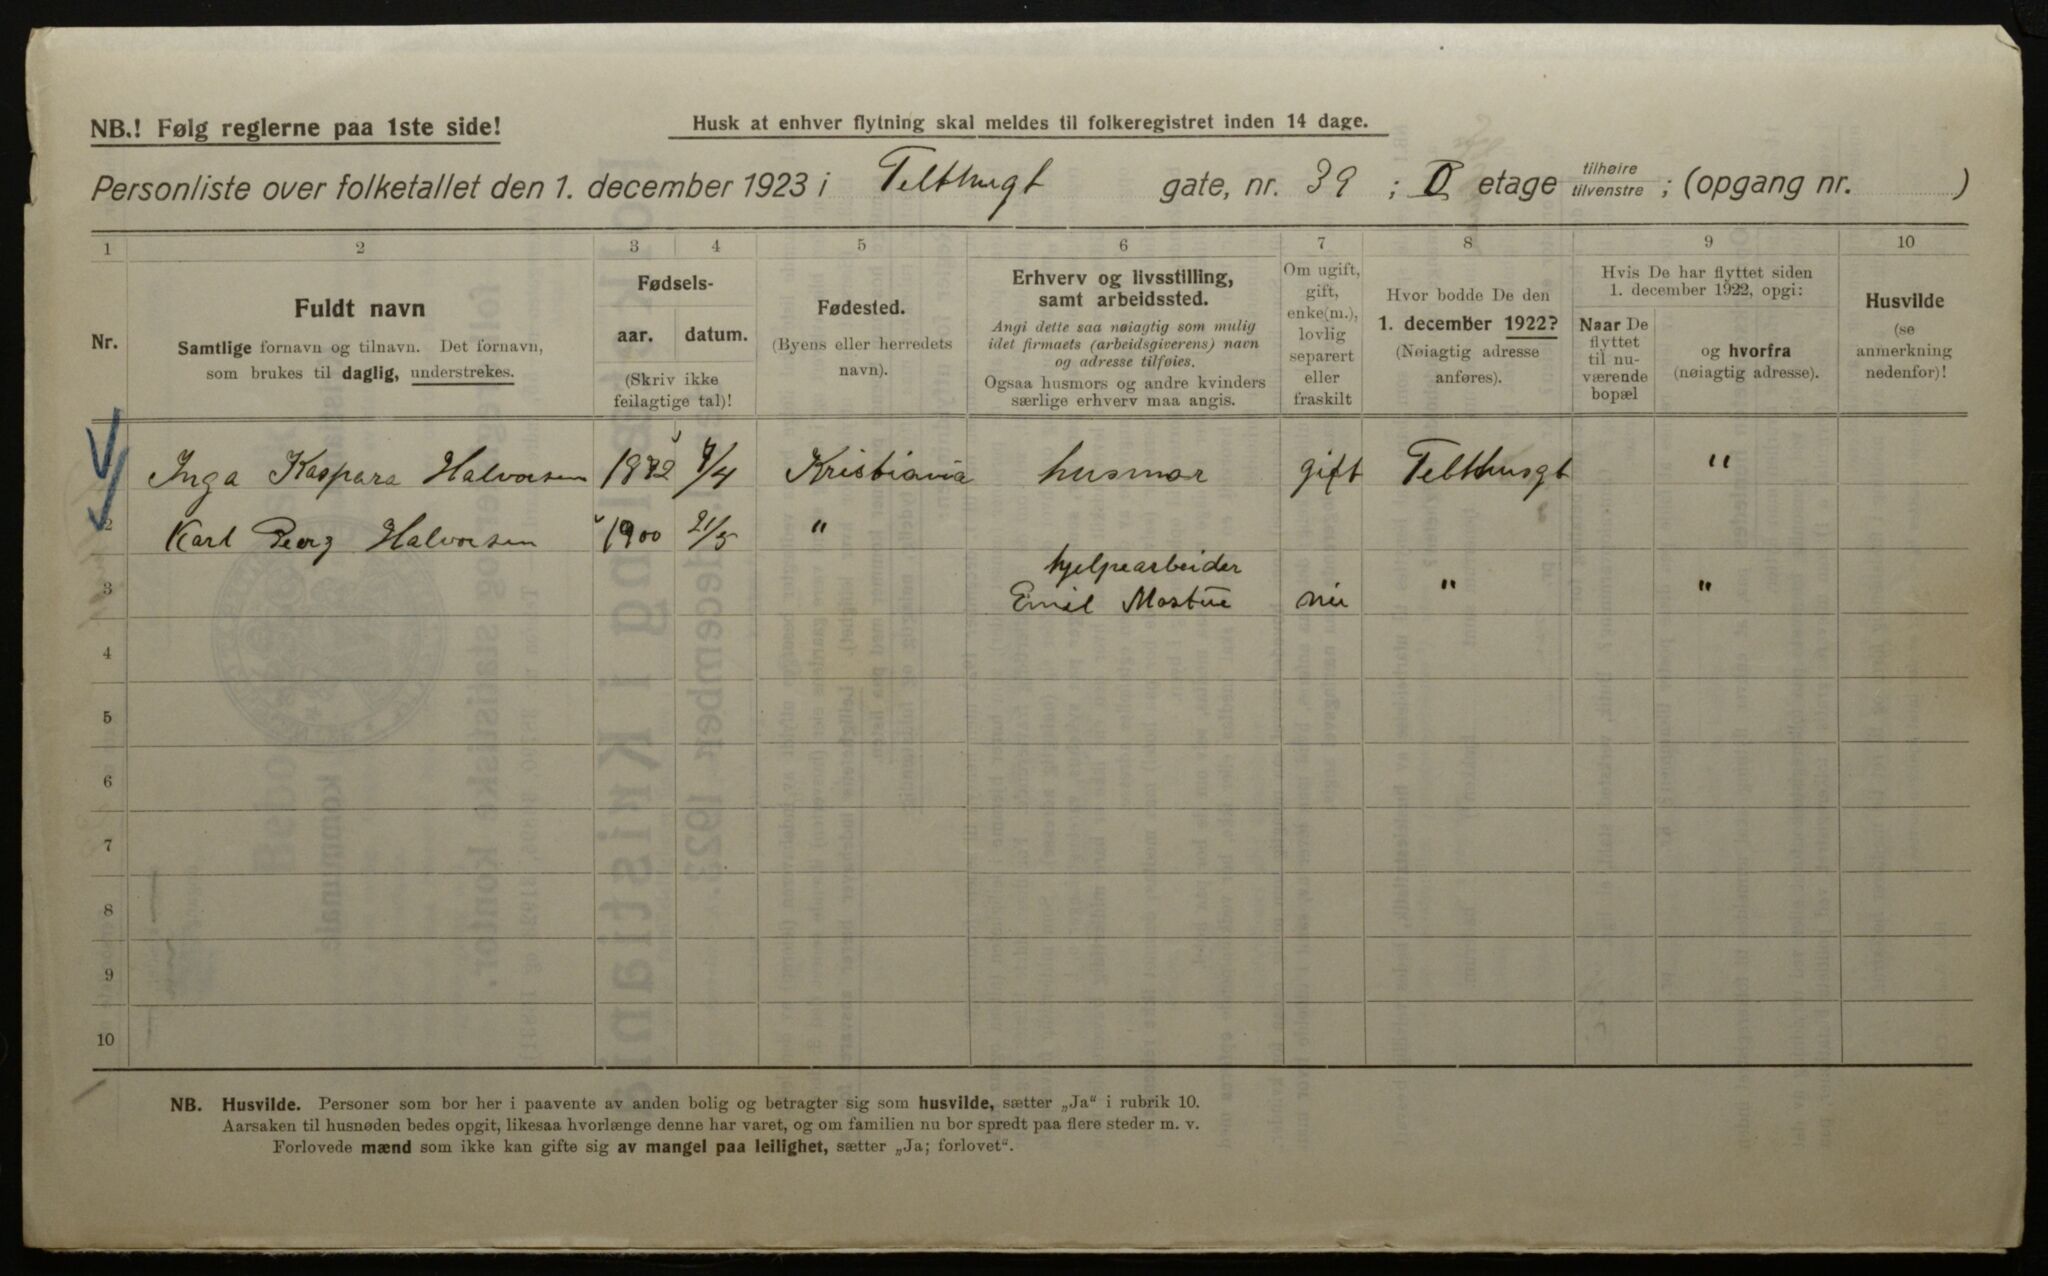 NB.! Følg reglerne paa 1ste side!
Husk at enhver flytning skal meldes til folkeregistret inden 14 dage.
Personliste over folketallet den 1. december 1923 i Telthusgt gate, nr. 39 ; etage tilhøire tilvenstre ; (opgang nr. )
1 2 3 4 5 6 7 8 9 10
Nr.
Fuldt navn
Samtlige fornavn og tilnavn. Det fornavn,
som brukes til daglig, understrekes.
Fødsels-
aar. datum.
(Skriv ikke
feilagtige tal)!
Fødested.
(Byens eller herredets
navn).
Erhverv og livsstilling,
samt arbeidssted.
Angi dette saa nøiagtig som mulig
idet firmaets (arbeidsgiverens) navn
og adresse tilføies.
Ogsaa husmors og andre kvinders
særlige erhverv maa angis.
Om ugift,
gift,
enke(m.),
lovlig
separert
eller
fraskilt
Hvor bodde De den
1. december 1922?
(Nøiagtig adresse
anføres).
Hvis De har flyttet siden
1. december 1922, opgi:
Naar De
flyttet
til nu-
værende
bopæl
og hvorfra
(nøiagtig adresse).
Husvilde
(se
anmerkning
nedenfor)!
Inga Kaspara Halvorsen 1872 7/4 Kristiania husmor gift Telthusgt "
2 Karl Georg Halvorsen 1900 21/5 "
hjelpearbeider
3 Emil Mostue " "
4
5
6
7
8
9
10
NB. Husvilde. Personer som bor her i paavente av anden bolig og betragter sig som husvilde, sætter „Ja“ i rubrik 10.
Aarsaken til husnøden bedes opgit, likesaa hvorlænge denne har varet, og om familien nu bor spredt paa flere steder m. v.
Forlovede mænd som ikke kan gifte sig av mangel paa leilighet, sætter „Ja; forlovet“.